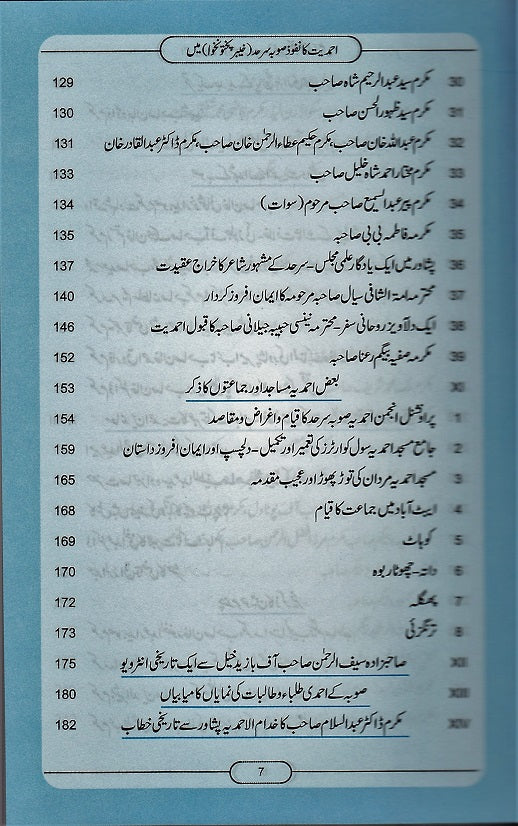 احمدیت کا نفوذ صوبہ سرحد (خیبر پختونخوا) میں
30 مکرم سید عبدالرحیم شاہ صاحب 129
31 مکرم سید ظہور الحسن صاحب 130
32 مکرم عبداللہ خان صاحب، مکرم حکیم عطاء الرحمٰن خان صاحب، مکرم ڈاکٹر عبدالقادر خان 131
33 مکرم مختار احمد شاہ خلیل صاحب 133
34 مکرم پیر عبدالسمیع صاحب مرحوم (سوات) 134
35 مکرمہ فاطمہ بی بی صاحبہ 135
36 پشاور میں ایک یادگار علمی مجلس - سرحد کے مشہور شاعر کا خراج عقیدت 137
37 محترمہ امۃ الشافی سیال صاحبہ مرحومہ کا ایمان افروز کردار 140
38 ایک دلآویز روحانی سفر - محترمہ نینسی حبیبہ جیلانی صاحبہ کا قبول احمدیت 146
39 مکرمہ صفیہ بیگم رعنا صاحبہ 152
XI بعض احمدیہ مساجد اور جماعتوں کا ذکر 153
1 پراونشل انجمن احمدیہ صوبہ سرحد کا قیام و اغراض و مقاصد 154
2 جامع مسجد احمدیہ سول کوارٹرز کی تعمیر اور تکمیل - دلچسپ اور ایمان افروز داستان 159
3 مسجد احمدیہ مردان کی توڑ پھوڑ اور عجیب مقدمہ 165
4 ایبٹ آباد میں جماعت کا قیام 168
5 کوہاٹ 169
6 داتہ - چھوٹا ربوہ 170
7 پھگلہ 172
8 ترنگزئی 173
XII صاحبزادہ سیف الرحمٰن صاحب آف بازید خیل سے ایک تاریخی انٹرویو 175
XIII صوبہ کے احمدی طلباء و طالبات کی نمایاں کامیابیاں 180
XIV مکرم ڈاکٹر عبدالسلام صاحب کا خدام الاحمدیہ پشاور سے تاریخی خطاب 182
7